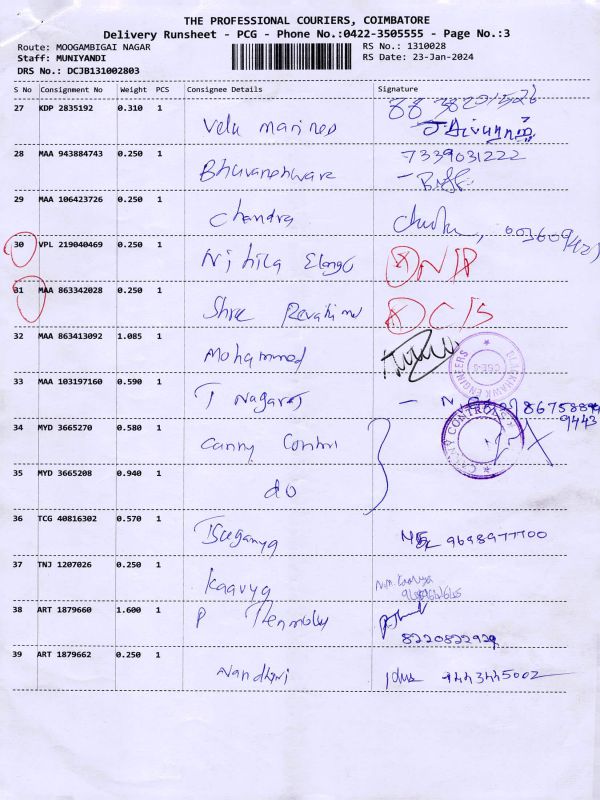 THE PROFESSIONAL COURIERS, COIMBATORE
Delivery Runsheet - PCG - Phone No.:0422-3505555 - Page No.:3
Route: MOOGAMBIGAI NAGAR RS No.: 1310028
Staff: MUNIYANDI RS Date: 23-Jan-2024
DRS No.: DCJB131002803
S No Consignment No Weight PCS Consignee Details Signature
27 KDP 2835192 0.310 1
Velu marines
28 MAA 943884743 0.250 1 7339031222
Bhuvaneshware
29 MAA 106423726 0.250 1
Chandra
30 VPL 219040469 0.250 1
Nithila Elango N/A
31 MAA 863342028 0.250 1
Shree DC/S
32 MAA 863413092 1.085 1
Mohammed
BLACKHAWK ENGINEERS
33 MAA 103197160 0.590 1
T Nagaraj
34 MYD 3665270 0.580 1
CONTROL
35 MYD 3665208 0.940 1
do
36 TCG 40816302 0.570 1
9698977700
37 TNJ 1207026 0.250 1
Kaavya
38 ART 1879660 1.600 1
P
8220822929
39 ART 1879662 0.250 1
Nandhini 9443445002